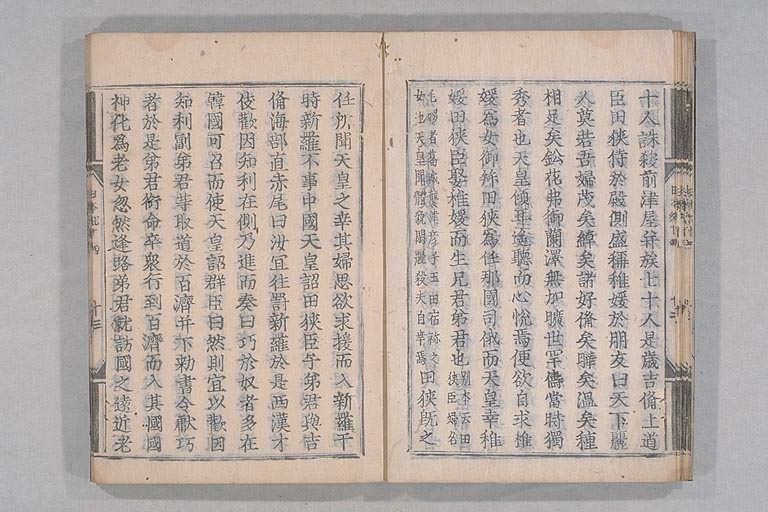 十人誅殺前津屋并族七十人是歳吉備上道
臣田狭侍於殿側盛稱稚媛於朋友曰天下麗
人莫若吾婦茂矣綽矣諸好備矣曄矣溫矣種
相足矣鉛花弗御蘭澤無加曠世罕儔當時獨
秀者也天皇傾耳遙聽而心悅焉便欲自求稚
媛爲女御拜田狭爲任那國司俄而天皇幸稚
媛田狭臣娶稚媛而生兄君弟君也別本云田狭臣婦名
毛媛者葛城襲津彥子玉田宿祢之女也天皇聞體貌閑麗殺夫自幸焉田狭旣之
任所聞天皇之幸其婦思欲求援而入新羅于
時新羅不事中國天皇詔田狭臣子弟君與吉
備海部直赤尾曰汝宜往罰新羅於是西漢才
伎歡因知利在側乃進而奏曰巧於奴者多在
韓國可召而使天皇詔群臣曰然則宜以歡因
知利副弟君等取道於百濟并下勅書令獻巧
者於是弟君銜命率衆行到百濟而入其國國
神化爲老女忽然逢路弟君就訪國之遠近老